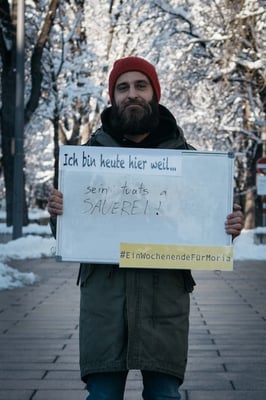 Ich bin heute hier weil...
sein tuats a
SAUEREI!
#EinWochenendeFürMoria